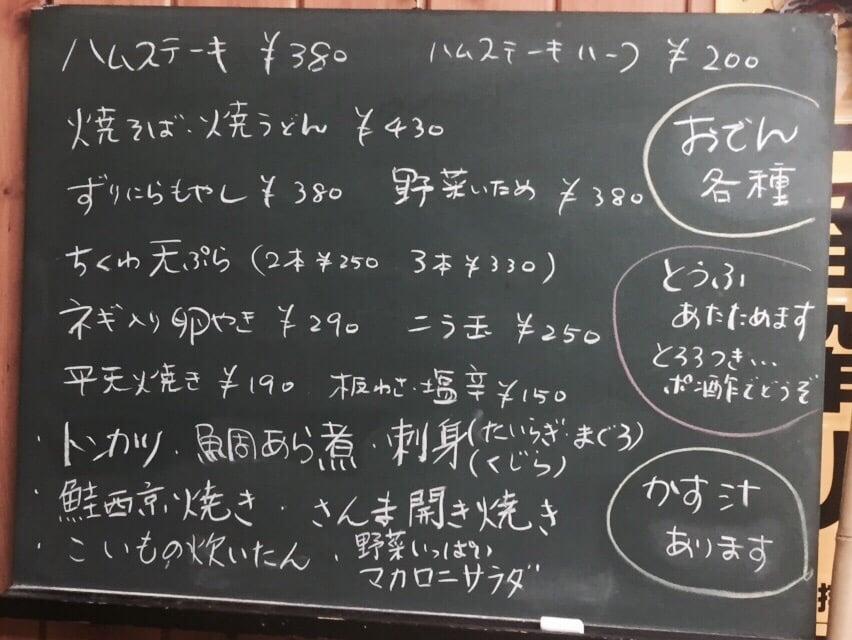 ハムステーキ ¥380 ハムステーキハーフ ¥200
焼そば・焼うどん ¥430
ずりにらもやし ¥380 野菜いため ¥380
ちくわ天ぷら (2本¥250 3本¥330)
ネギ入り卵やき ¥290 ニラ玉 ¥250
平天焼き ¥190 板わさ・塩辛 ¥150
・トンカツ・鯛あら煮・刺身(たいらぎ・まぐろ)
(くじら)
・鮭西京焼き・さんま開き焼き
・こいもの炊いたん・野菜いっぱい
マカロニサラダ
おでん
各種
とうふ
あたためます
とろろつき…
ポン酢でどうぞ
かす汁
あります